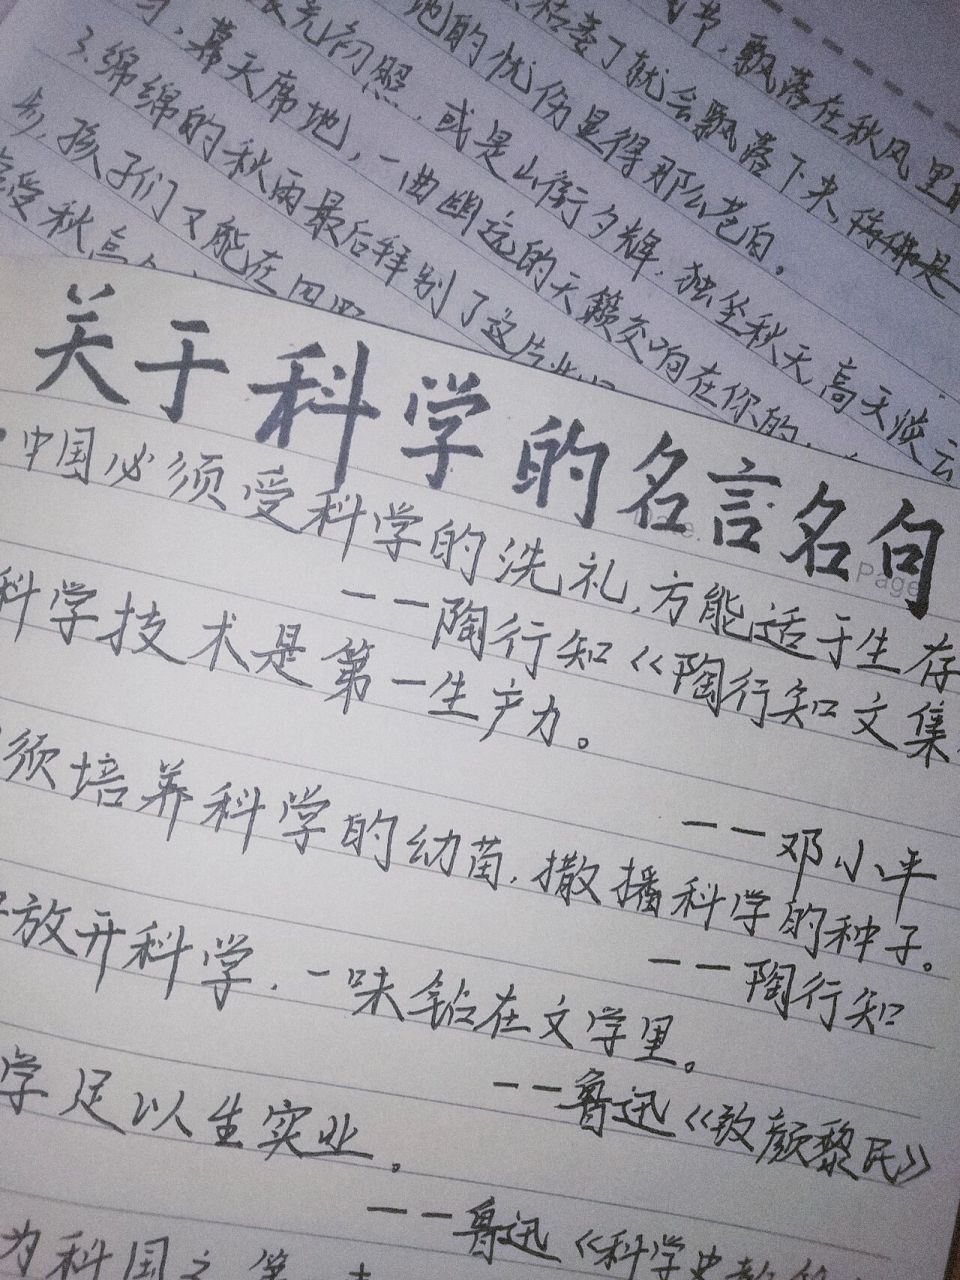 节,飘落在秋风里
枯萎了就会飘落下来,彷佛是
地的忧伤显得那么苍白。
晨光初照,或是山衔夕辉,独坐秋天,高天淡云
,幕天席地,一曲幽远的天籁交响在你的
3.绵绵的秋雨最后拜别了这片
乡,孩子们又能在田
受秋高
关于科学的名言名句
Page
中国必须受科学的洗礼,方能适于生存
——陶行知《陶行知文集
科学技术是第一生产力。
——邓小平
须培养科学的幼苗,撒播科学的种子。
——陶行知
放开科学,一味钻在文学里。
——鲁迅《致颜黎民》
学足以生实业。
——鲁迅《科学史教
为科国之第